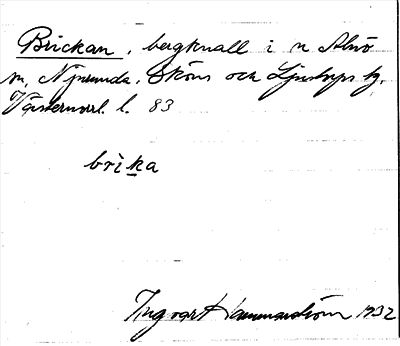 Brickan, bergknall i n Alnö
sn, Njurunda, Sköns och Ljustorps tg,
Västernorrl. l. 83
brìka
Ingvar Hammarström 1932